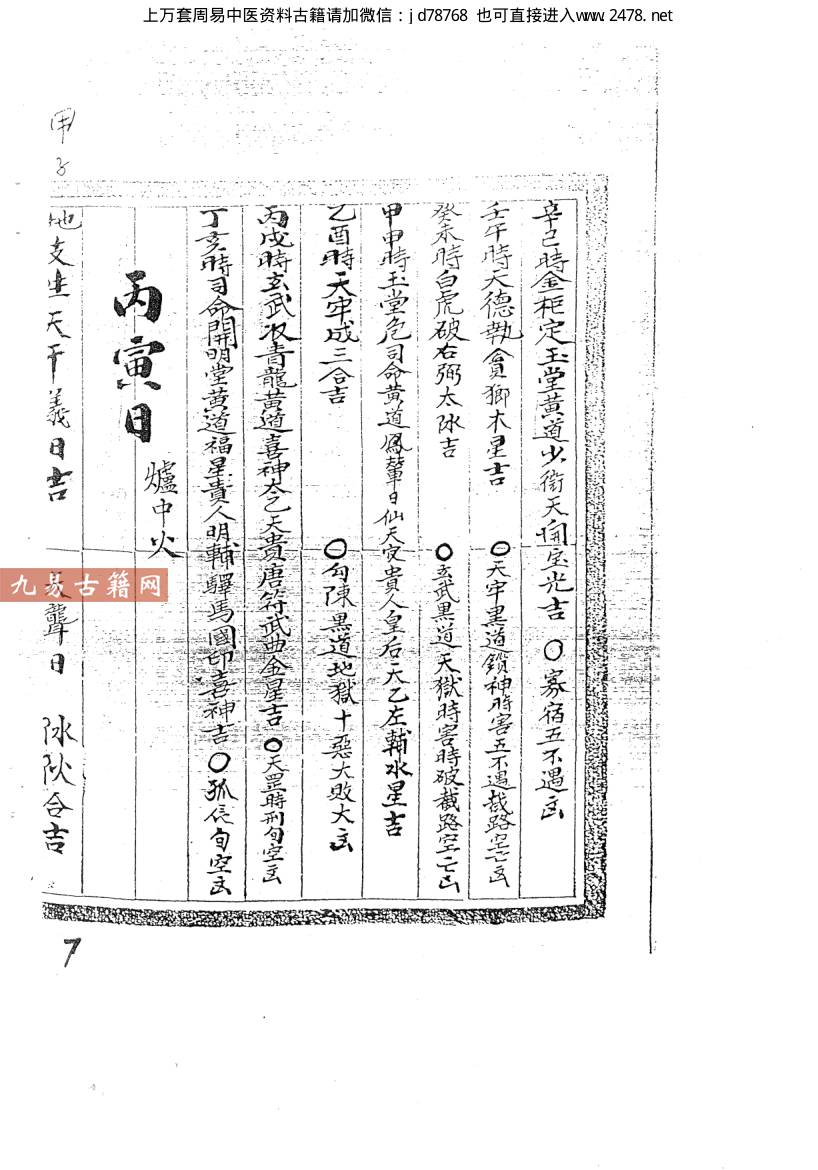 上万套周易中医资料古籍请加微信：jd78768 也可直接进入www.2478.net
甲子
辛巳時金柜定玉堂黄道少微天開宝光吉 〇寡宿五不遇凶
壬午時天德執貪狼木星吉 〇天牢黑道鎖神時害五不遇截路空亡凶
癸未時白虎破右弼太阴吉 〇玄武黑道天獄時害時破截路空亡凶
甲申時玉堂危司命黄道鳳輦日仙天官貴人皇后天乙左輔水星吉
乙酉時天牢成三合吉 〇勾陳黑道地獄十惡大敗大凶
丙戌時玄武收青龍黄道喜神太乙天貴唐符武曲金星吉 〇天罡時刑旬空凶
丁亥時司命開明堂黄道福星貴人明輔驛馬國印喜神吉 〇孤辰旬空凶
丙寅日 爐中火
地支生天干義日吉 聾日 阴阳合吉
九易古籍网
7